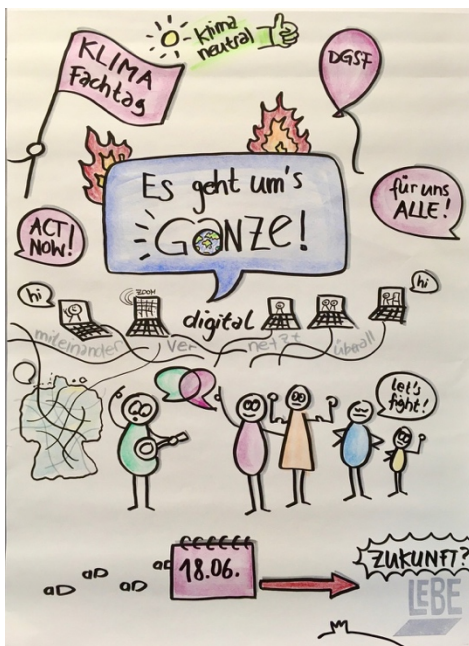 KLIMA
Fachtag
klima
neutral
DGSF
Es geht um's
GANZE!
für uns
ALLE!
ACT
NOW!
hi
ZOOM
hi
digital
miteinander ver netzt überall
let's
fight!
18.06.
ZUKUNFT?
LEBE